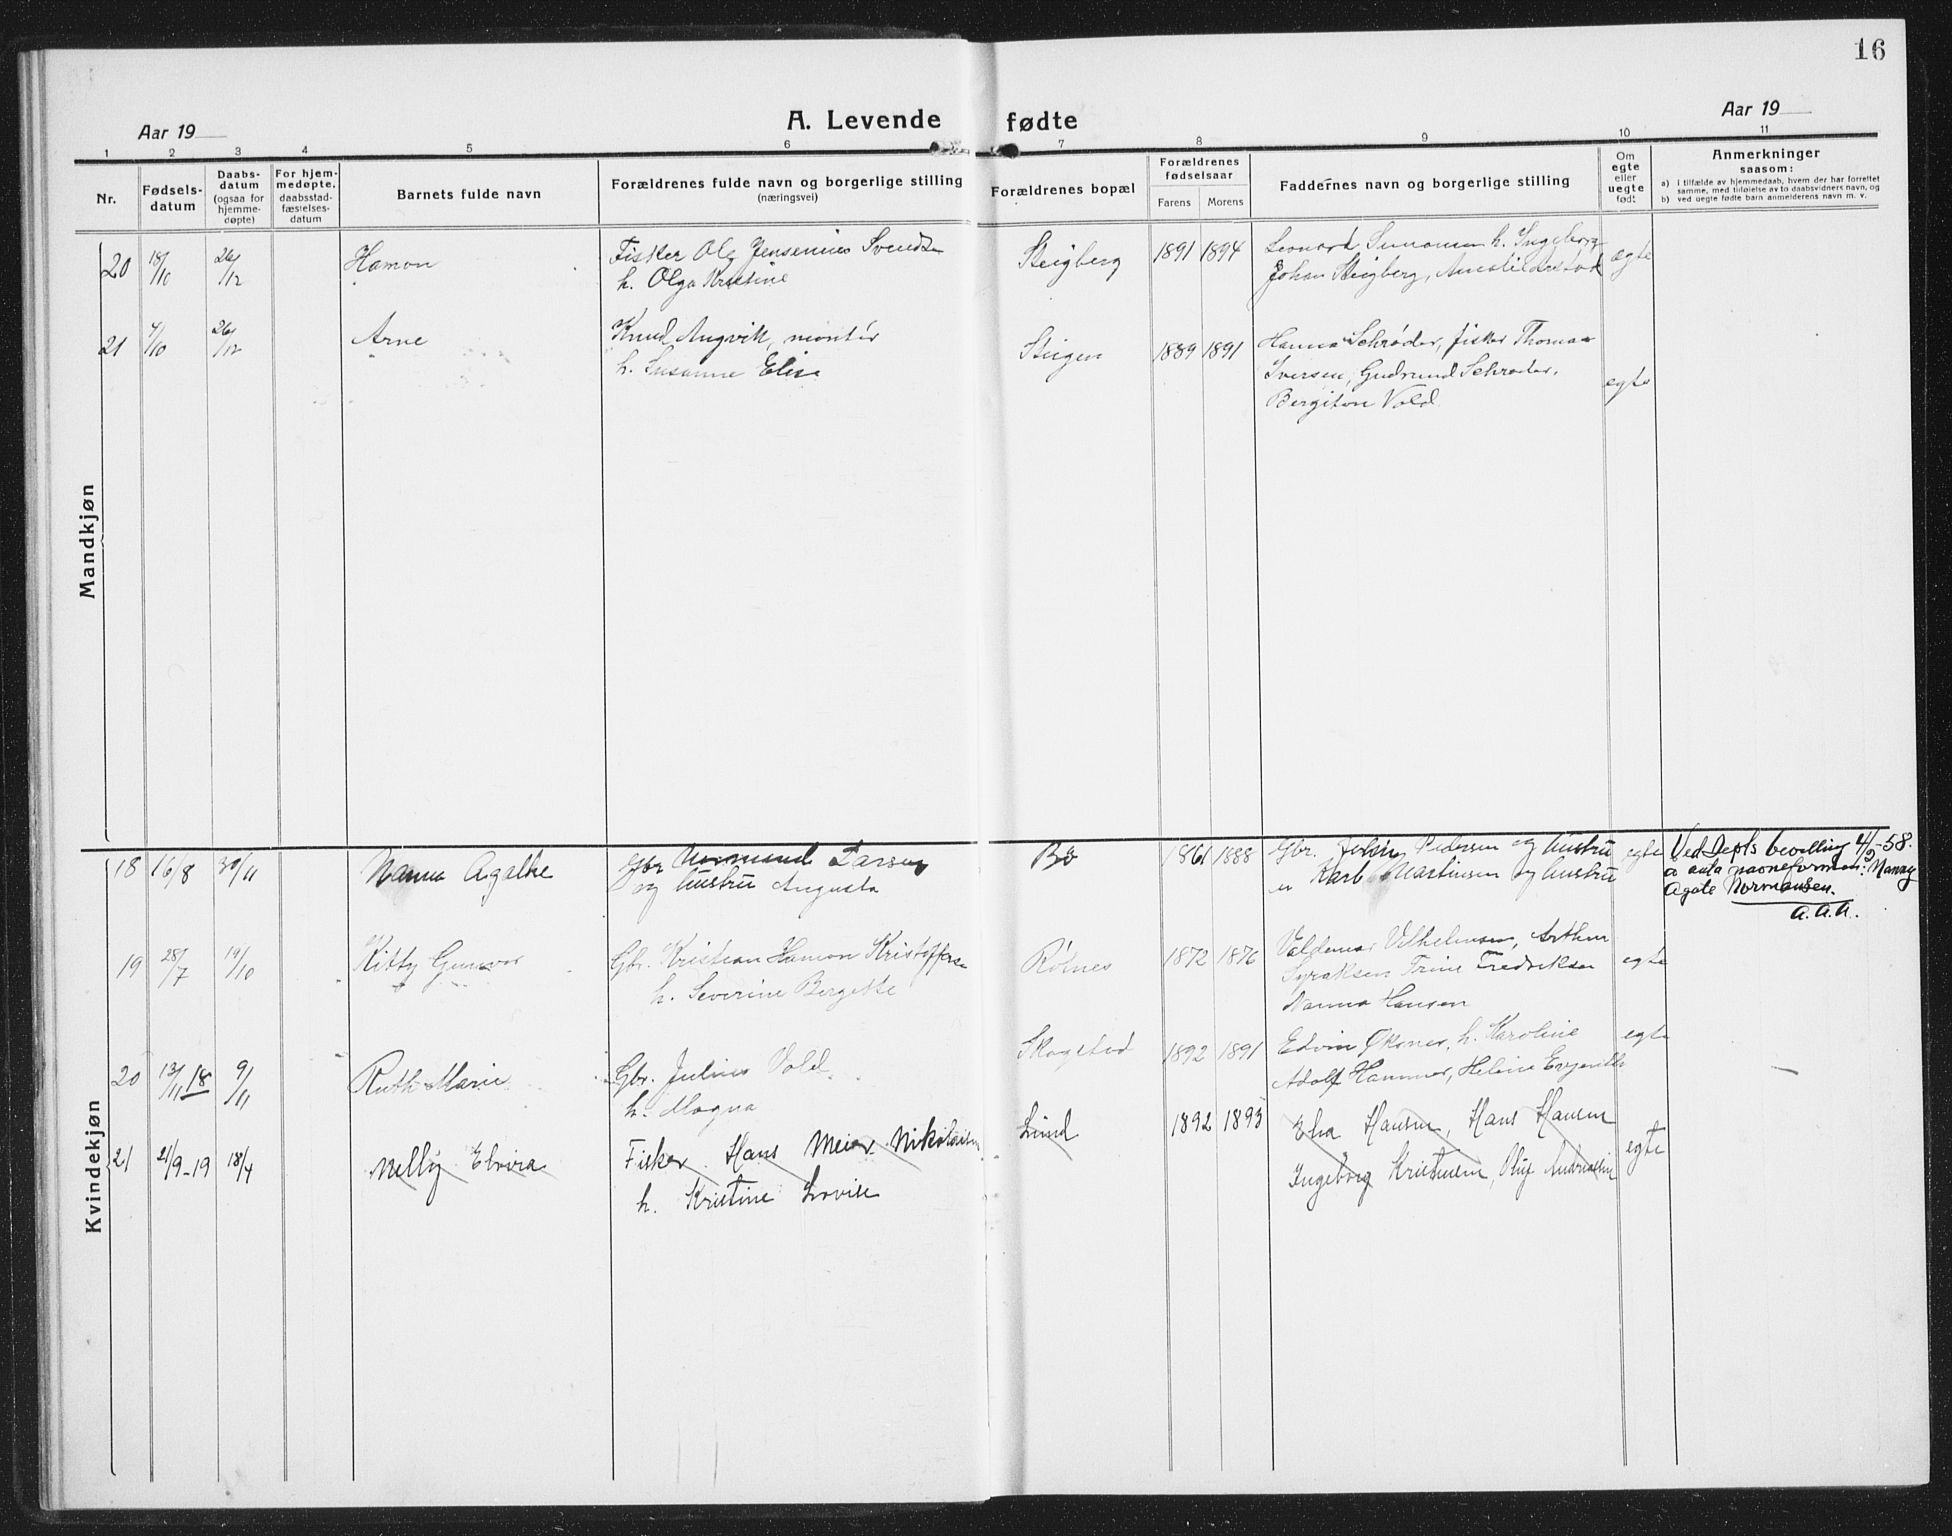 16
A. Levende fødte
Aar 19
Aar 19
1 2 3 4 5 6 7 8 9 10 11
Nr.
Fødsels-
datum
Daabs-
datum
(ogsaa for
hjemme-
døpte)
For hjem-
medøpte.
daabsstad-
fæstelses-
datum
Barnets fulde navn
Forældrenes fulde navn og borgerlige stilling
(næringsvei)
Forældrenes bopæl
Forældrenes
fødselsaar
Farens Morens
Faddernes navn og borgerlige stilling
Om
egte
eller
uegte
født
Anmerkninger
saasom:
a) i tilfælde av hjemmedaab, hvem der har forrettet
samme, med tilføielse av to daabsvidners navn, og
b) ved uegte fødte barn anmelderens navn m. v.
Mandkjøn
20 18/10 26/12 Hamon Fisker Ole Jensenius Svendsen Steigberg 1891 1894 Leonard Simonsen h. Ingeborg egte
h. Olga Kristine Johan Steigberg,
21 4/10 26/12 Arne Knud Angvik, montér Steigen 1889 1891 Hanna Schrøder, fisker Thomas
h. Susanne Elise Iversen, Gudrund Schrøder, egte
Bergiton Vold
Kvindekjøn
18 16/8 30/11 Nanna Agathe Gbr Normund Larsen Bø 1861 1888 Gbr. Johan Pedersen og hustru egte Ved Depts bevilling 4/2-58.
og hustru Augusta " Karl Martinsen og hustru a anta navneformen: Nanny
Agate Normansen.
a.a.a.
19 28/7 19/10 Kitty Gunvor Gbr. Kristian Hamon Kristoffersen Røsnes 1872 1876 Valdemar Vilhelmsen, Arthur egte
h. Severine Bergette Syraksen Trine Fredriksen
Nanna Hansen
20 13/11 18 9/11 Ruth Marie Gbr. Julius Vold Skogstad 1892 1891 Edvin Øksnes, h. Karoline egte
h. Magna Adolf Hammer, Helene
21 21/9-19 18/4 Nelly Elvira Fisker Hans Meier Nikolaisen Lund 1892 1893 Ela Hansen, Hans Hansen egte
h. Kristine Lovise Ingeborg Kristensen, Oluf Andreassen